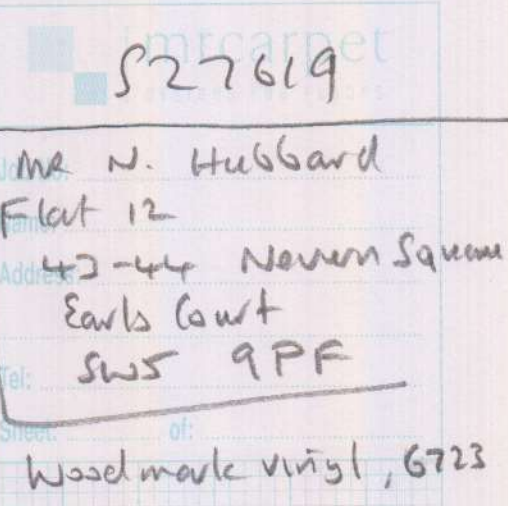 mrcarpet
S27619
Mr N. Hubbard
Name:
Flat 12
Address:
43-44 Nevern Square
Earls Court
Tel:
SW5 9PF
Sheet: of:
Woodmark vinyl, 6723